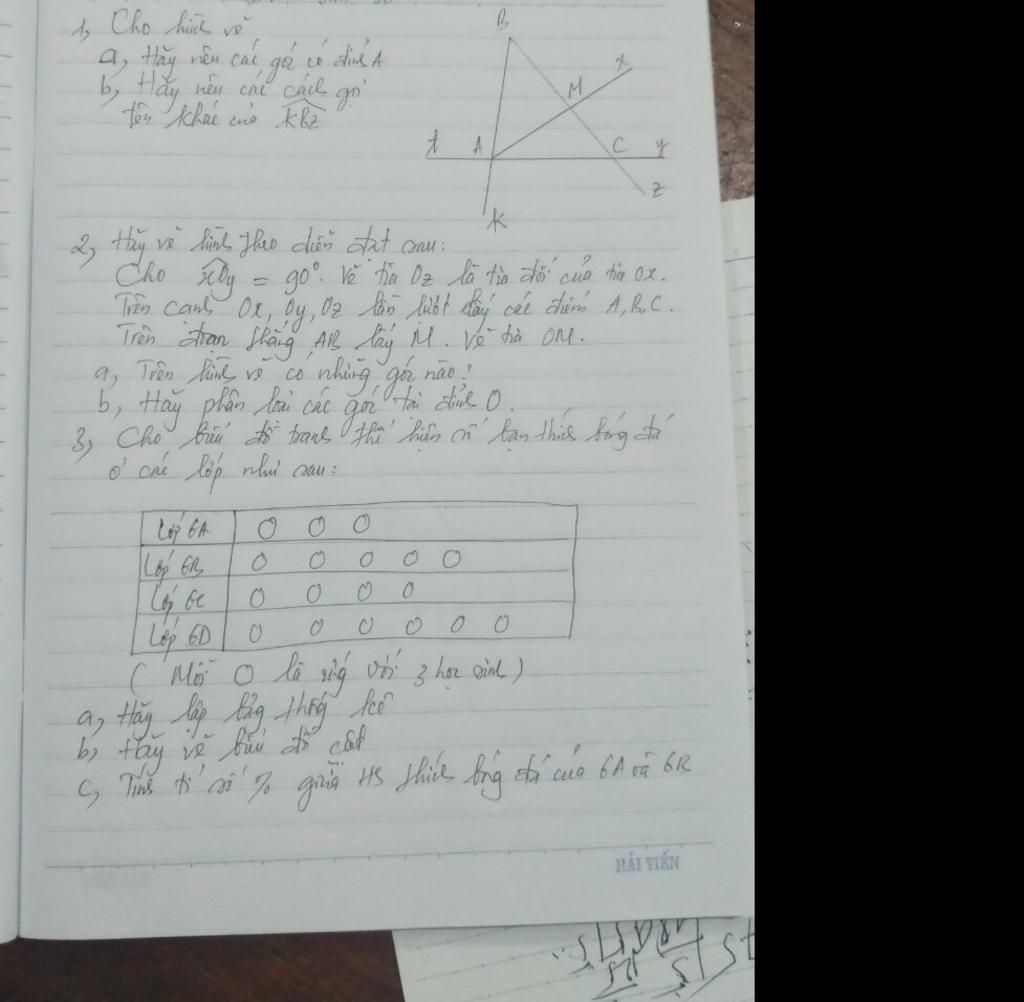 1, Cho hình vẽ
a, Hãy nêu các góc có đỉnh A
b, Hãy nêu các cách gọi
tên khác của KBz
B
x
M
t
A
C
y
z
K
2, Hãy vẽ hình theo diễn đạt sau:
Cho xOy = 90°. Vẽ tia Oz là tia đối của tia Ox.
Trên cạnh Ox, Oy, Oz lần lượt lấy các điểm A, B, C.
Trên đoạn thẳng AB lấy M. Vẽ tia OM.
a, Trên hình vẽ có những góc nào?
b, Hãy phân loại các góc tại đỉnh O.
3, Cho biểu đồ tranh thể hiện số bạn thích bóng đá
ở các lớp như sau:
Lớp 6A O O O
Lớp 6B O O O O O
Lớp 6C O O O O
Lớp 6D O O O O O O
( Mỗi O là ứng với 3 học sinh )
a, Hãy lập bảng thống kê
b, Hãy vẽ biểu đồ cột
c, Tính tỉ số % giữa HS thích bóng đá của 6A và 6B
HẢI TIẾN